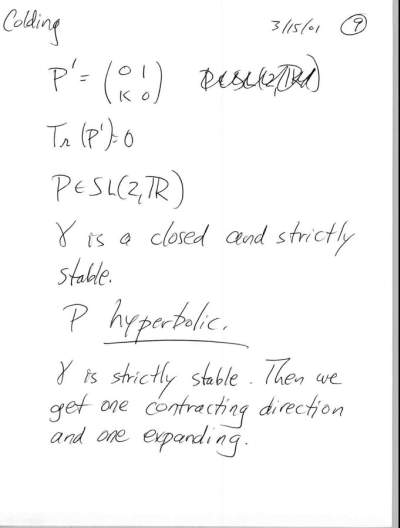 Colding 3/15/01 9
P' = (0 1
K 0)
Tr (P') = 0
P ∈ SL(2, ℝ)
γ is a closed and strictly
stable.
P hyperbolic.
γ is strictly stable. Then we
get one contracting direction
and one expanding.